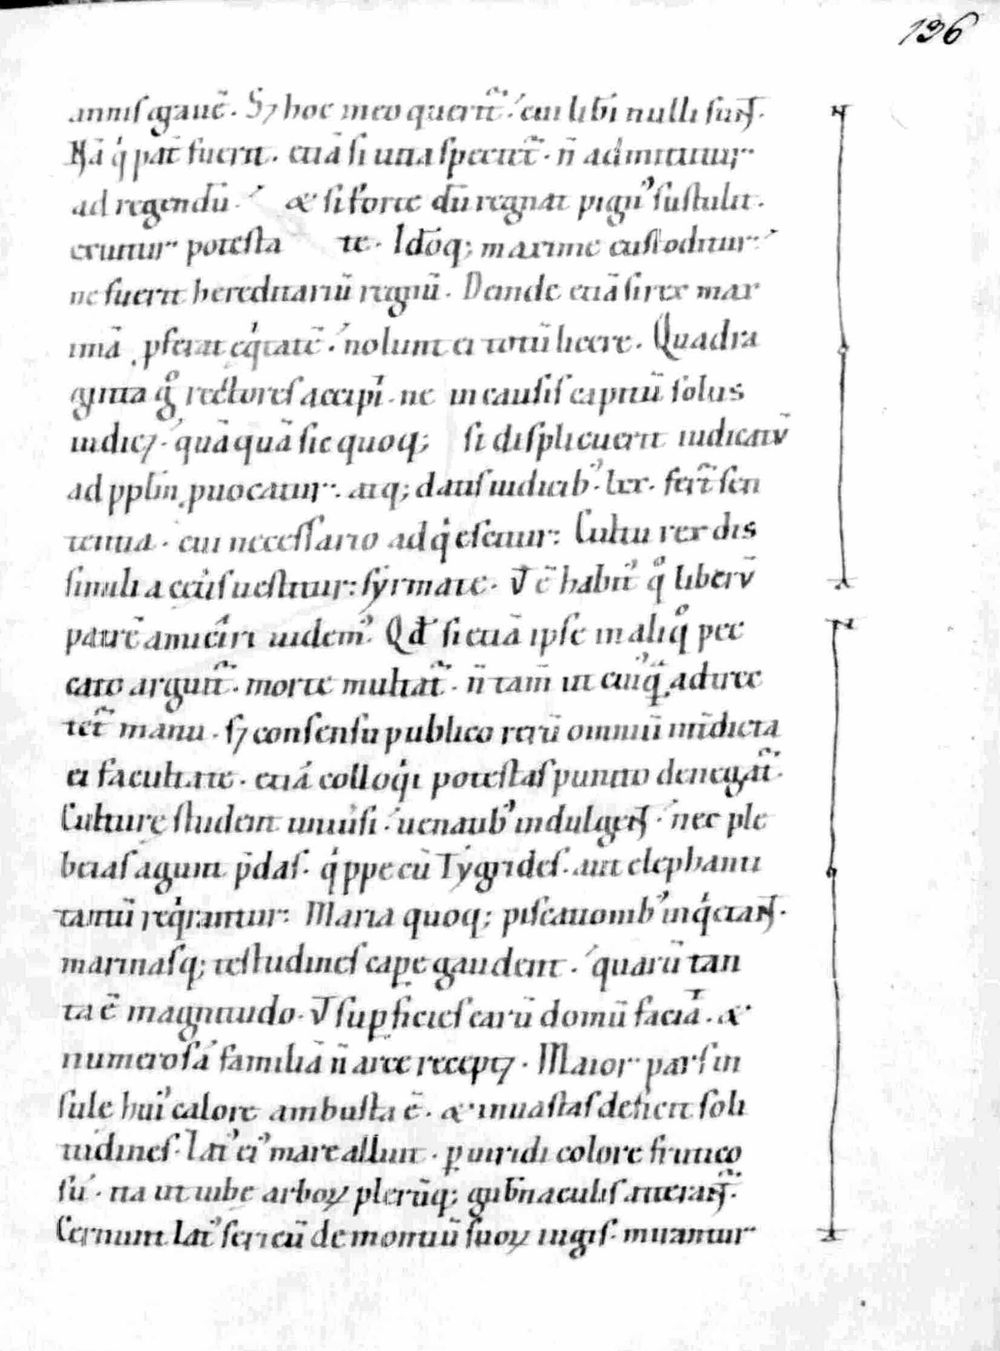 136
annis ꝗauē. Sꝫ hoc in eo querit̃. cui liƀi nulli sunt.
Nā q̇ pat̃ fuerit. etiā si uita spectet̃. n̄ admittitur
ad regendū. & si forte dū regnat pign᾿ sustulit.
exuitur potesta te. Idōq; maxime custoditur
ne fuerit hereditariū regnū. Deinde etiā si rex max
imā p̱ferat eq̇tatē. nolunt ei totū licere. Quadra
ginta g̊ rectores accipit. ne in causis capitū solus
iudicꝫ. quāquā sic quoq; si displicuerit iudicatū
ad pplm̄ ꝓuocatur. atq; datis iudicib᾿. lxx. fert̃ sen
tentia. cui necessario adq̇escitur: Cultu rex dis
simili a cet̉is uestitur: syrmate. Ut ē habit᾿ q̊ liberū
patrē amicĩri uidem᾿. Qđ si etiā ipse in aliq̊ pec
cato arguit̃. morte multat̃. n̄ tam̄ ut cui᾿q̃ adtrec
tet̃ manu. sꝫ consensu publico rerū omniū int̃dicta
ei facultate. etiā colloq̇i potestas punito denegat̃.
Culturę student uniu̇si. uenatib᾿ indulgent. nec ple
beias agunt p̄das. q̇ppe cū Tygrides. aut elephanti
tantū req̇rantur: Maria quoq; piscationib᾿ inq̇etant.
marinasq; testudines capę gaudent. quarū tan
ta ē magnitudo. Ut suꝑficies earū domū faciat. &
numerosā familiā n̄ arce receptꝫ. Maior pars in
sule hui᾿ calore ambusta ē. & in uastas deficit soli
tudines. Lat᾿ ei᾿ mare alluit. ꝑ uiridi colore frutico
sū. ita ut iubę arboꝝ plerūq; gub̄naculis atterant̃.
Cernunt lat᾿ sericū de montiū suoꝝ iugis. mirantur